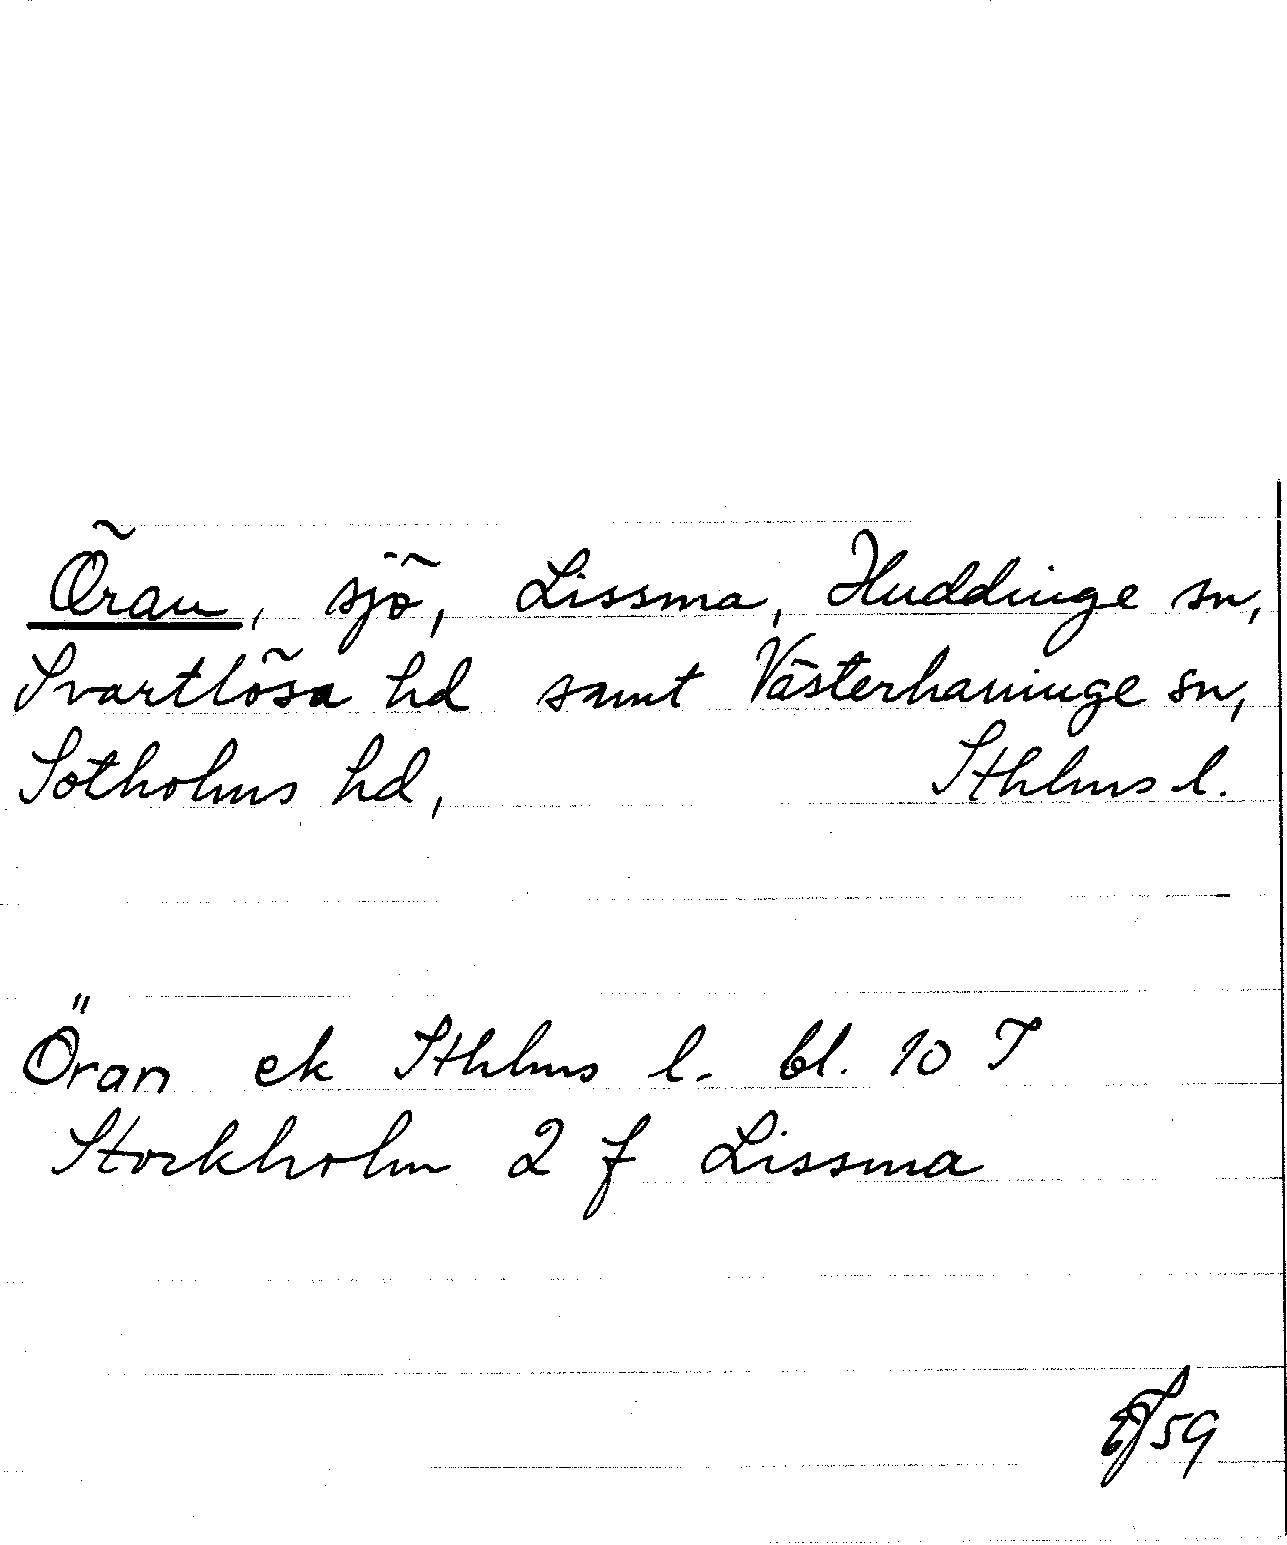 Öran, sjö, Lissma, Huddinge sn,
Svartlösa hd samt Västerhaninge sn,
Sotholms hd, Sthlms l.
Öran ek Sthlms l. bl. 10 T
Stockholm 2 f Lissma
59